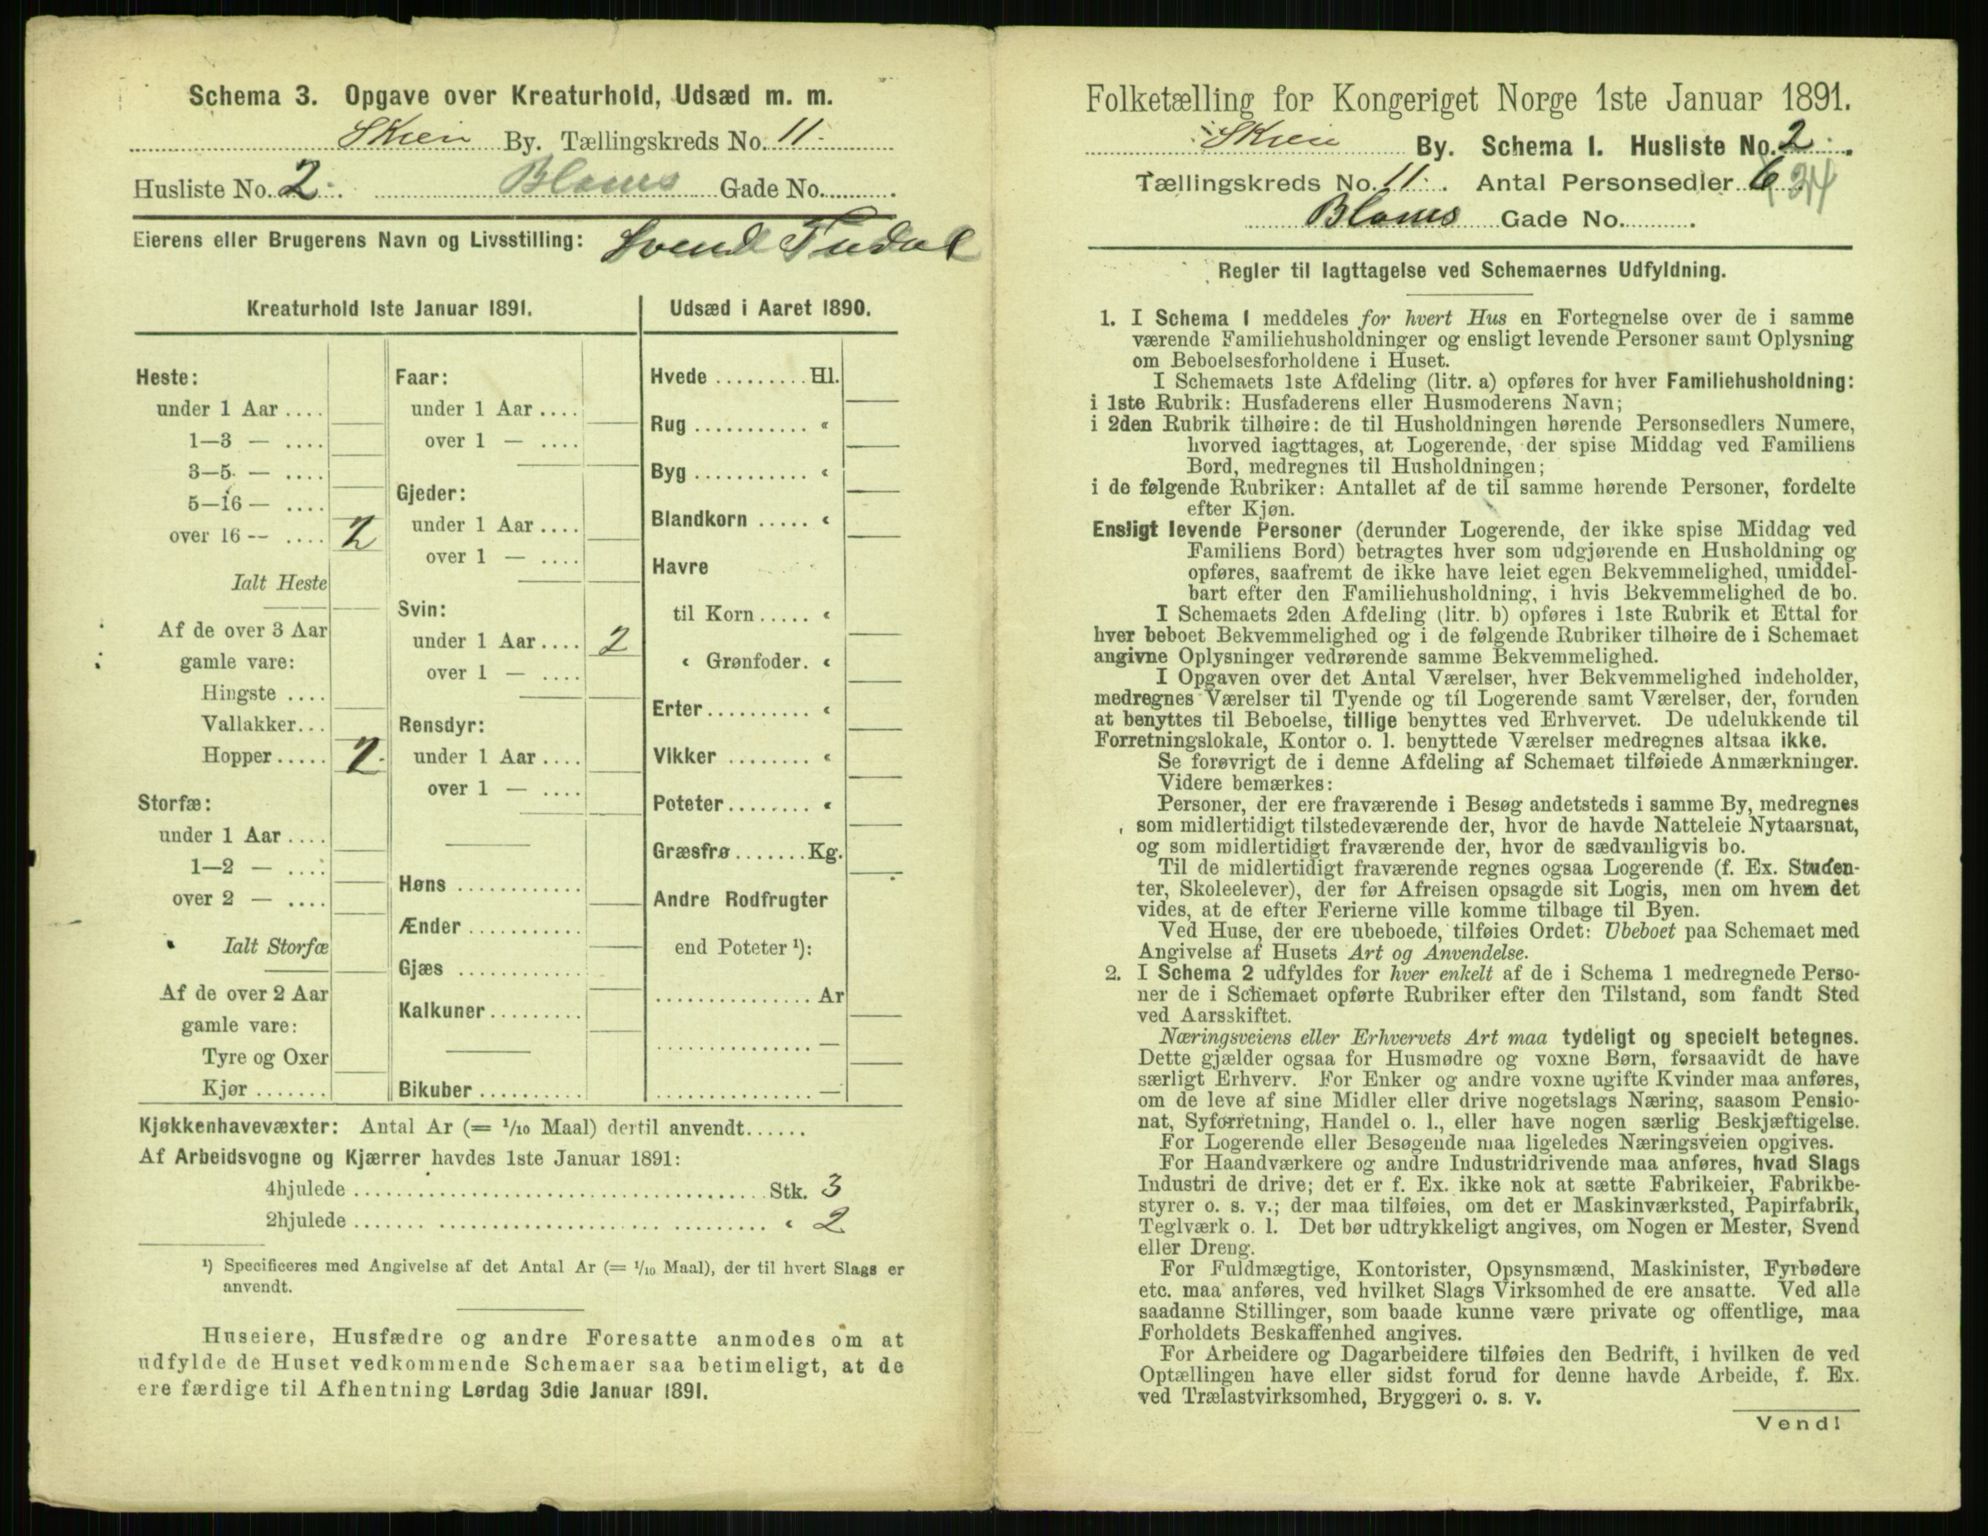 Schema 3. Opgave over Kreaturhold, Udsæd m. m.
Skien By. Tællingskreds No. 11.
Husliste No. 2. Bloms Gade No.
Eierens eller Brugerens Navn og Livsstilling: Svend
Kreaturhold 1ste Januar 1891.
Heste:
under 1 Aar ....
1—3 — ....
3—5 — ....
5—16 — ....
over 16 -- .... 2
Ialt Heste
Af de over 3 Aar
gamle vare:
Hingste ....
Vallakker...
Hopper..... 2
Storfæ:
under 1 Aar ....
1—2 — ....
over 2 — ....
Ialt Storfæ
Af de over 2 Aar
gamle vare:
Tyre og Oxer
Kjør .......
Faar:
under 1 Aar ....
over 1 — ....
Gjeder:
under 1 Aar ....
over 1 — ....
Svin:
under 1 Aar .... 2
over 1 — ....
Rensdyr:
under 1 Aar ....
over 1 — ....
Høns ............
Ænder ...........
Gjæs ............
Kalkuner.........
Bikuber ..........
Udsæd i Aaret 1890.
Hvede ......... Hl.
Rug ........... «
Byg ........... «
Blandkorn ..... «
Havre
til Korn ..... «
« Grønfoder. «
Erter.......... «
Vikker ........ «
Poteter........ «
Græsfrø ....... Kg.
Andre Rodfrugter
end Poteter ¹):
............... Ar
............... —
............... —
Kjøkkenhavevæxter: Antal Ar (= 1/10 Maal) dertil anvendt......
Af Arbeidsvogne og Kjærrer havdes 1ste Januar 1891:
4hjulede ................................... Stk. 3
2hjulede ................................... « 2
¹) Specificeres med Angivelse af det Antal Ar (= 1/10 Maal), der til hvert Slags er
anvendt.
Huseiere, Husfædre og andre Foresatte anmodes om at
udfylde de Huset vedkommende Schemaer saa betimeligt, at de
ere færdige til Afhentning Lørdag 3die Januar 1891.
Folketælling for Kongeriget Norge 1ste Januar 1891.
Skien By. Schema 1. Husliste No. 2.
Tællingskreds No. 11. Antal Personsedler 6 34
Bloms Gade No.
Regler til Iagttagelse ved Schemaernes Udfyldning.
1. I Schema 1 meddeles for hvert Hus en Fortegnelse over de i samme
værende Familiehusholdninger og ensligt levende Personer samt Oplysning
om Beboelsesforholdene i Huset.
I Schemaets 1ste Afdeling (litr. a) opføres for hver Familiehusholdning:
i 1ste Rubrik: Husfaderens eller Husmoderens Navn;
i 2den Rubrik tilhøire: de til Husholdningen hørende Personsedlers Numere,
hvorved iagttages, at Logerende, der spise Middag ved Familiens
Bord, medregnes til Husholdningen;
i de følgende Rubriker: Antallet af de til samme hørende Personer, fordelte
efter Kjøn.
Ensligt levende Personer (derunder Logerende, der ikke spise Middag ved
Familiens Bord) betragtes hver som udgjørende en Husholdning og
opføres, saafremt de ikke have leiet egen Bekvemmelighed, umiddel-
bart efter den Familiehusholdning, i hvis Bekvemmelighed de bo.
I Schemaets 2den Afdeling (litr. b) opføres i 1ste Rubrik et Ettal for
hver beboet Bekvemmelighed og i de følgende Rubriker tilhøire de i Schemaet
angivne Oplysninger vedrørende samme Bekvemmelighed.
I Opgaven over det Antal Værelser, hver Bekvemmelighed indeholder,
medregnes Værelser til Tyende og til Logerende samt Værelser, der, foruden
at benyttes til Beboelse, tillige benyttes ved Erhvervet. De udelukkende til
Forretningslokale, Kontor o. l. benyttede Værelser medregnes altsaa ikke.
Se forøvrigt de i denne Afdeling af Schemaet tilføiede Anmærkninger.
Videre bemærkes:
Personer, der ere fraværende i Besøg andetsteds i samme By, medregnes
som midlertidigt tilstedeværende der, hvor de havde Natteleie Nytaarsnat,
og som midlertidigt fraværende der, hvor de sædvanligvis bo.
Til de midlertidigt fraværende regnes ogsaa Logerende (f. Ex. Studen-
ter, Skoleelever), der før Afreisen opsagde sit Logis, men om hvem det
vides, at de efter Ferierne ville komme tilbage til Byen.
Ved Huse, der ere ubeboede, tilføies Ordet: Ubeboet paa Schemaet med
Angivelse af Husets Art og Anvendelse.
2. I Schema 2 udfyldes for hver enkelt af de i Schema 1 medregnede Perso-
ner de i Schemaet opførte Rubriker efter den Tilstand, som fandt Sted
ved Aarsskiftet.
Næringsveiens eller Erhvervets Art maa tydeligt og specielt betegnes.
Dette gjælder ogsaa for Husmødre og voxne Børn, forsaavidt de have
særligt Erhverv. For Enker og andre voxne ugifte Kvinder maa anføres,
om de leve af sine Midler eller drive nogetslags Næring, saasom Pensio-
nat, Syforretning, Handel o. l., eller have nogen særlig Beskjæftigelse.
For Logerende eller Besøgende maa ligeledes Næringsveien opgives.
For Haandværkere og andre Industridrivende maa anføres, hvad Slags
Industri de drive; det er f. Ex. ikke nok at sætte Fabrikeier, Fabrikbe-
styrer o. s. v.; der maa tilføies, om det er Maskinværksted, Papirfabrik,
Teglværk o. l. Det bør udtrykkeligt angives, om Nogen er Mester, Svend
eller Dreng.
For Fuldmægtige, Kontorister, Opsynsmænd, Maskinister, Fyrbødere
etc. maa anføres, ved hvilket Slags Virksomhed de ere ansatte. Ved alle
saadanne Stillinger, som baade kunne være private og offentlige, maa
Forholdets Beskaffenhed angives.
For Arbeidere og Dagarbeidere tilføies den Bedrift, i hvilken de ved
Optællingen have eller sidst forud for denne havde Arbeide, f. Ex.
ved Trælastvirksomhed, Bryggeri o. s. v.
Vend!